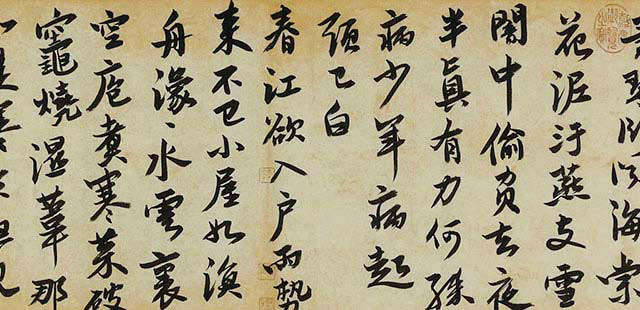 卧聞海棠
花泥汙燕支雪
闇中偷負去夜
半真有力何殊
病少年病起
頭已白
春江欲入戶雨勢
來不已小屋如漁
舟濛〻水雲裏
空庖煮寒菜破
竈燒濕葦那